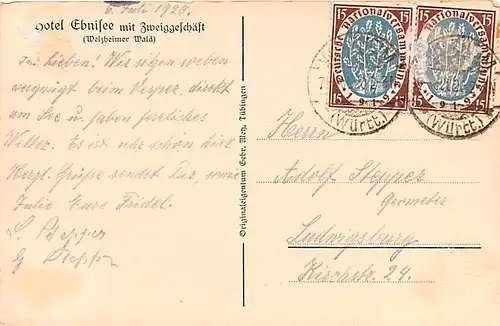 6. Juli 1920.
Hotel Ebnisee mit Zweiggeschäft
(Welzheimer Wald)
Ihr Lieben! Wir sitzen soeben
vergnügt beim Vesper, direkt
am See u. haben herrliches
Wetter. Es ist sehr schön hier
Herzl. Grüße sendet Dir, sowie
Julie Eure Friedel.
Originaleigentum Gebr. Metz, Tübingen
Deutsche Nationalversammlung
15 15
1919
Deutsche Nationalversammlung
15 15
1919
(Württ.)
(Württ.)
Herrn
Adolf Stepper
Geometer
Ludwigsburg
Kirchstr. 24.